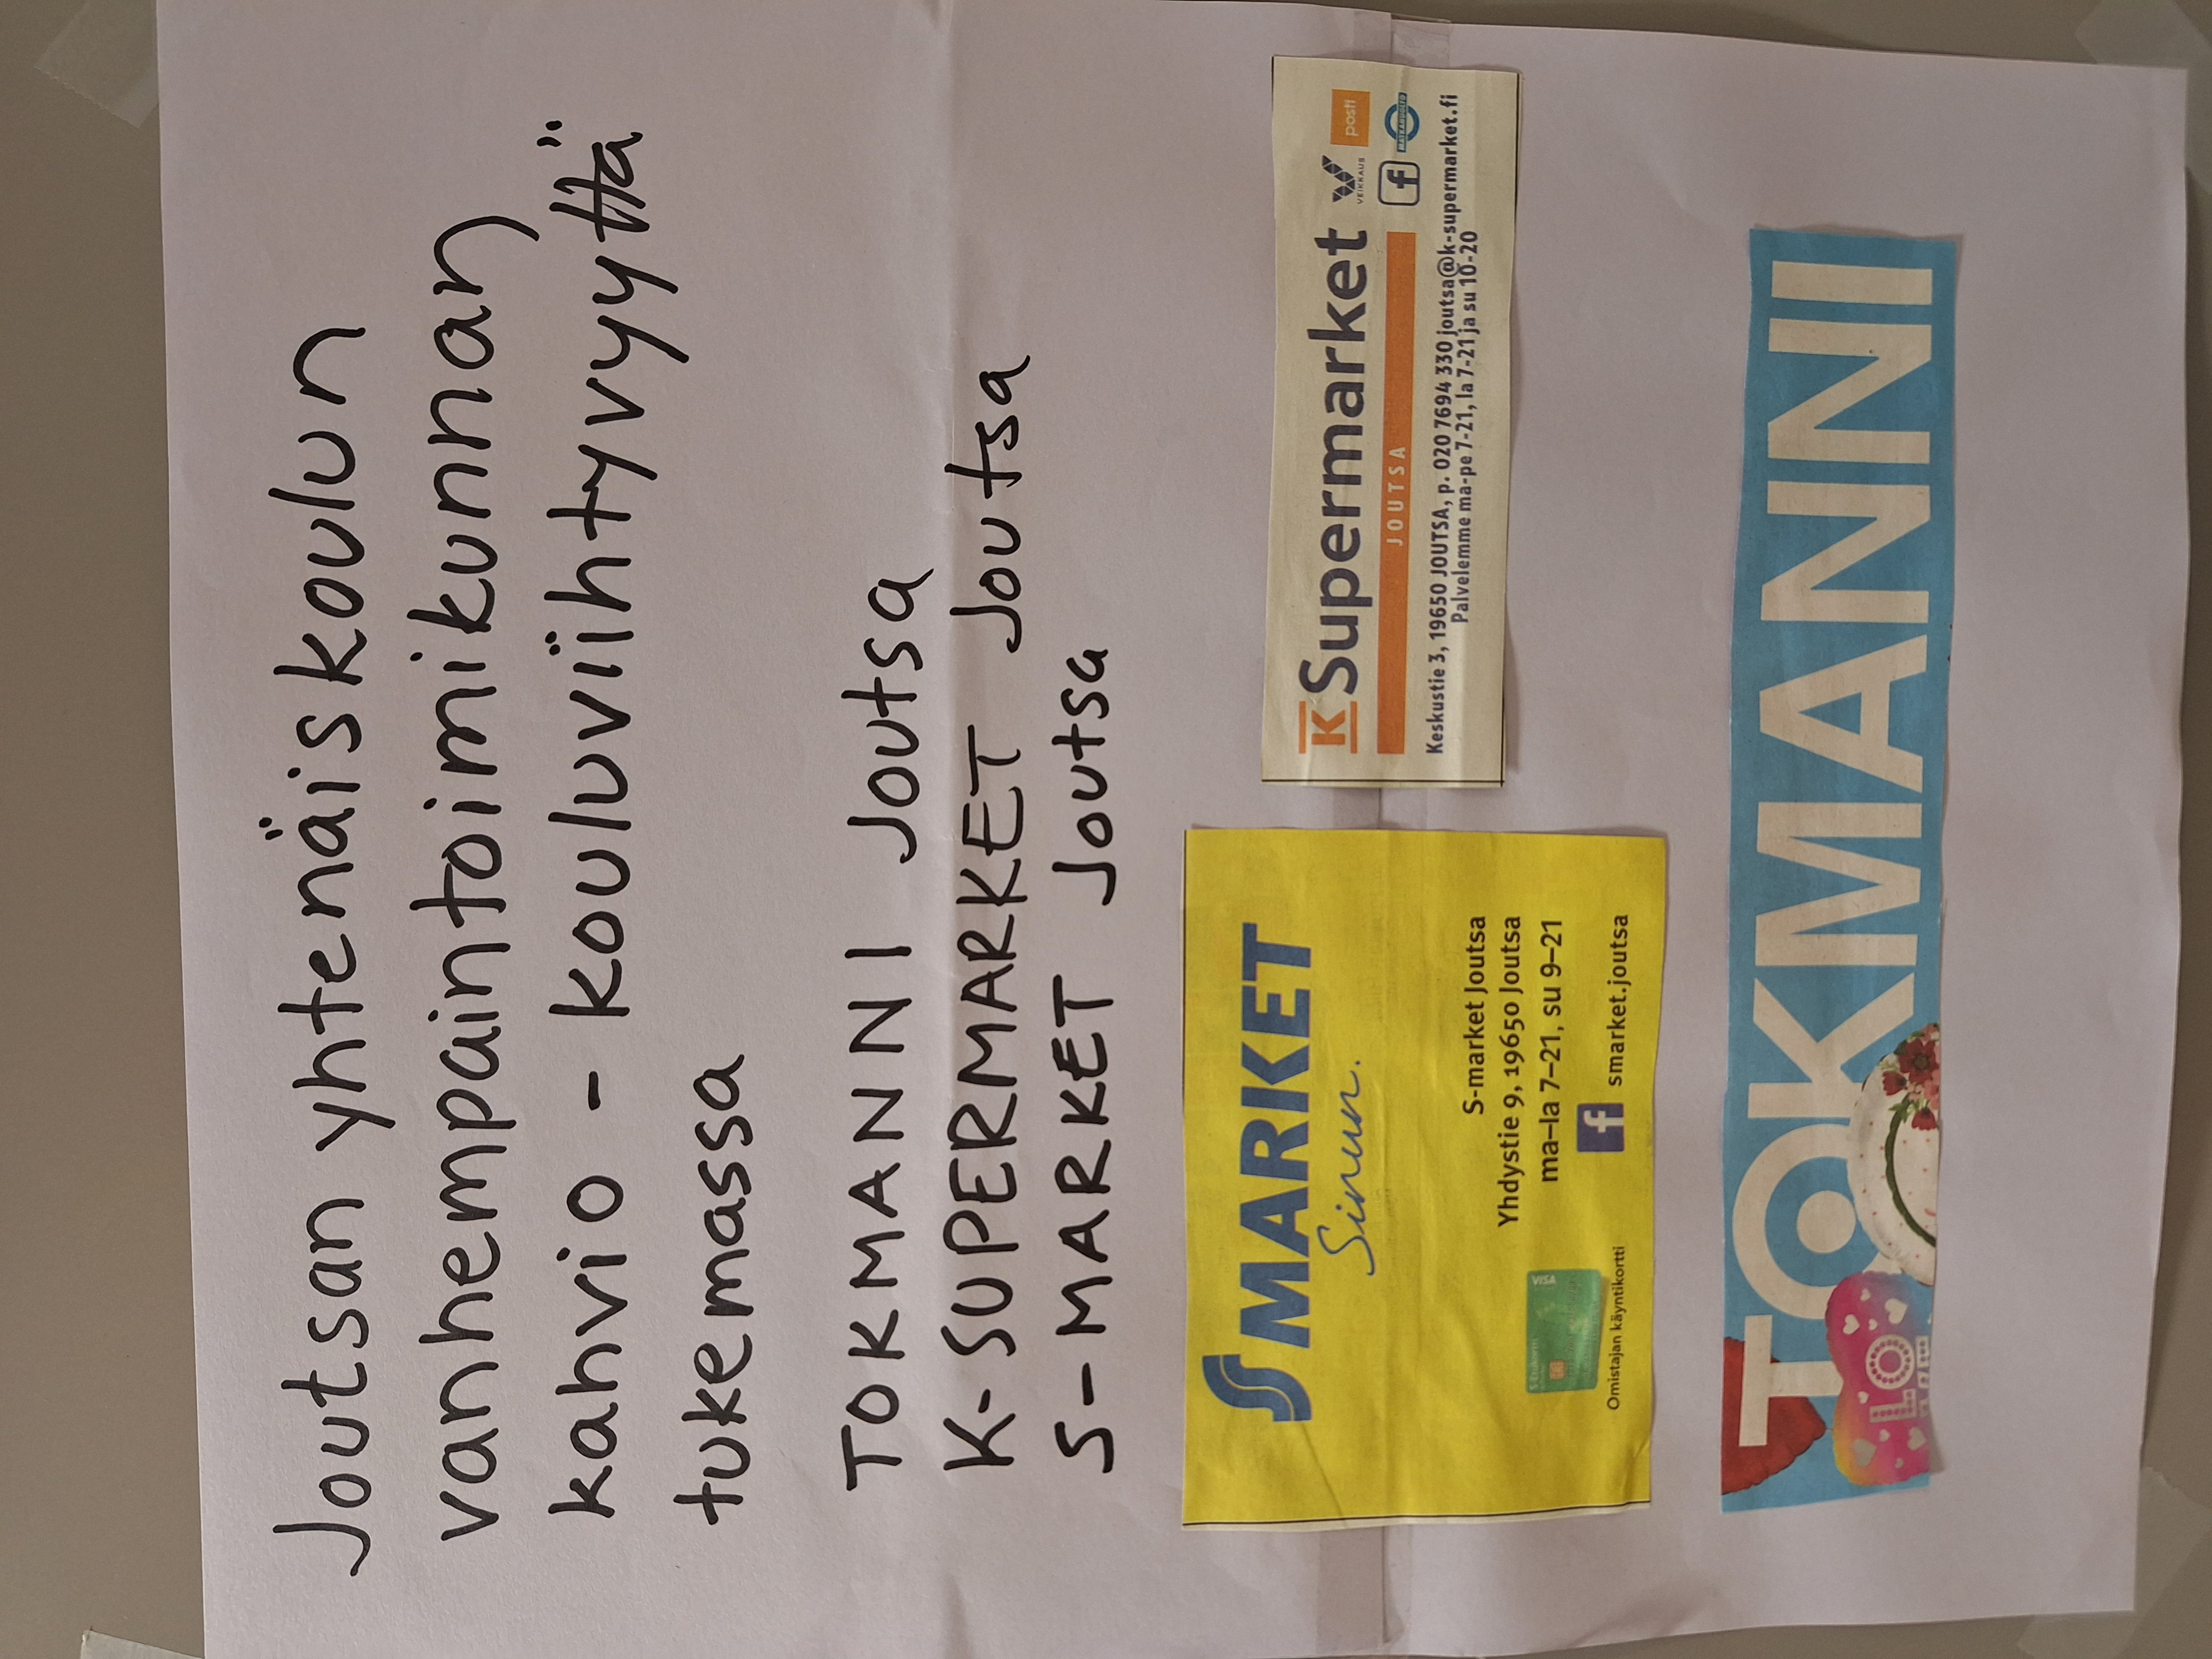 Joutsan yhtenäiskoulun
vanhempaintoimikunnan
kahvio - kouluviihtyvyyttä
tukemassa
TOKMANNI Joutsa
K-SUPERMARKET Joutsa
S-MARKET Joutsa
S MARKET
Sinun.
S-market Joutsa
Yhdystie 9, 19650 Joutsa
ma-la 7-21, su 9-21
f smarket.joutsa
VISA
Omistajan käyntikortti
K Supermarket
JOUTSA
VEIKKAUS
posti
f
MATKAHUOLTO
Keskustie 3, 19650 JOUTSA, p. 020 7694 330 joutsa@k-supermarket.fi
Palvelemme ma-pe 7-21, la 7-21 ja su 10-20
TOKMANNI
LO